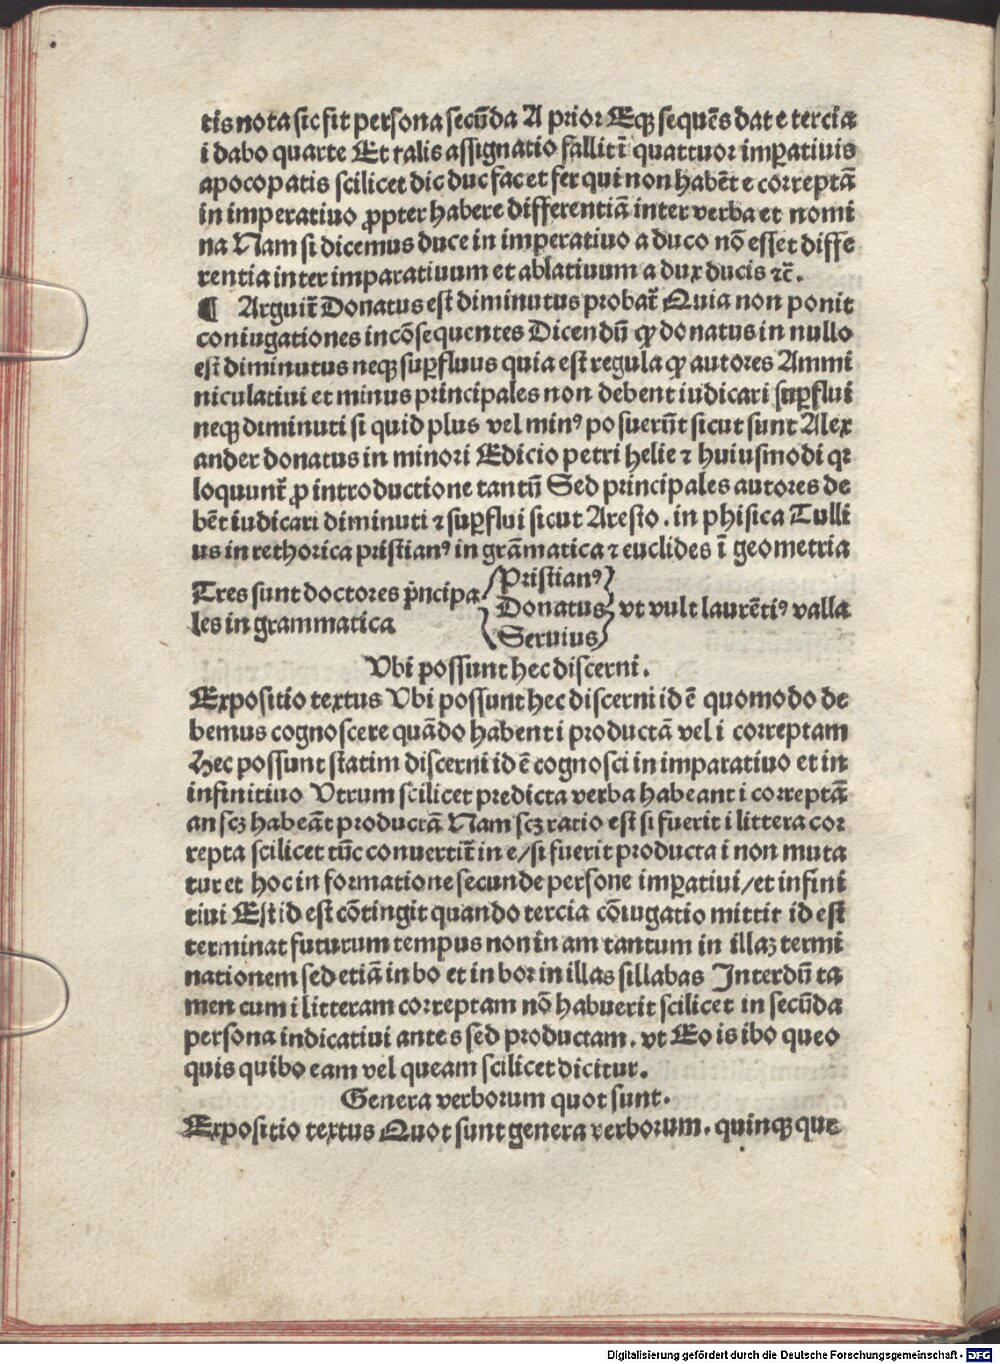 tis nota sic sit persona secūda A prior Eqꝫ sequēs dat e tercia
i dabo quarte Et talis assignatio fallit ī quattuor impatiuis
apocopatis scilicet dic duc fac et fer qui non habēt e correptā
in imperatiuo ꝓpter habere differentiā inter verba et nomi
na Nam si dicemus duce in imperatiuo a duco nō esset diffe
rentia inter imparatiuum et ablatiuum a dux ducis ⁊c̄.
¶ Arguit̄ Donatus est diminutus probat̄ Quia non ponit
coniugationes incōsequentes Dicendū ꝙ donatus in nullo
est diminutus neqꝫ suꝑfluus quia est regula ꝙ autores Ammi
niculatiui et minus principales non debent iudicari suꝑflui
neqꝫ diminuti si quid plus vel minꝰ posuerūt sicut sunt Alex
ander donatus in minori Edicio petri helie ⁊ huiusmodi qꝛ
loquunt̄ ꝓ introductione tantū Sed principales autores de
bēt iudicari diminuti ⁊ suꝑflui sicut Aresto. in phisica Tulli
us in rethorica pristianꝰ in grāmatica ⁊ euclides ī geometria
Tres sunt doctores p̄ncipa
les in grammatica
Pristianꝰ
Donatus
Seruius
vt vult laurētiꝰ valla
Vbi possunt hec discerni.
Expositio textus Vbi possunt hec discerni id ē quomodo de
bemus cognoscere quādo habent i productā vel i correptam
Hec possunt statim discerni id ē cognosci in imparatiuo et in
infinitiuo Vtrum scilicet predicta verba habeant i correptā
an scꝫ habeāt productā Nam scꝫ ratio est si fuerit i littera cor
repta scilicet tūc conuertit̄ in e/si fuerit producta i non muta
tur et hoc in formatione secunde persone impatiui/et infini
tiui Est id est cōtingit quando tercia cōiugatio mittit id est
terminat futurum tempus non in am tantum in illaꝫ termi
nationem sed etiā in bo et in bor in illas sillabas Interdū ta
men cum i litteram correptam nō habuerit scilicet in secūda
persona indicatiui ante s sed productam. vt Eo is ibo queo
quis quibo eam vel queam scilicet dicitur.
Genera verborum quot sunt.
Expositio textus Quot sunt genera verborum. quinqꝫ que
Digitalisierung gefördert durch die Deutsche Forschungsgemeinschaft - DFG